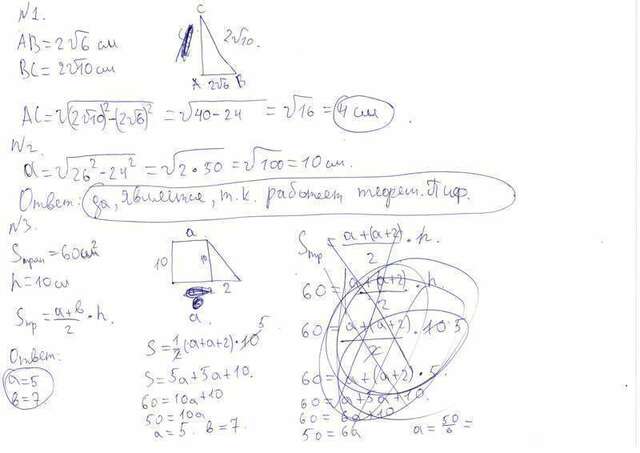 N1.
AB=2√6 см
BC=2√10 см
C
2√10.
A 2√6 B
AC=√(2√10)²-(2√6)² =√40-24 =√16 =4 см.
N2
a=√26²-24² =√2·50=√100=10 см.
Ответ: да, является, т.к. работает теорем. Пиф.
N3.
Sтрап=60см²
h=10см
Sтр=a+b/2·h.
Ответ:
a=5
b=7.
a
10
10
2
a.
S=1/2(a+a+2)·10 5
S=5a+5a+10.
60=10a+10
50=10a
a=5. b=7.
Sтр=a+(a+2)/2·h.
60=a+(a+2)/2·h
60=a+(a+2)/2·10 5
60=a+(a+2)·5.
60=a+5a+10.
60=6a+10
50=6a
a=50/6=